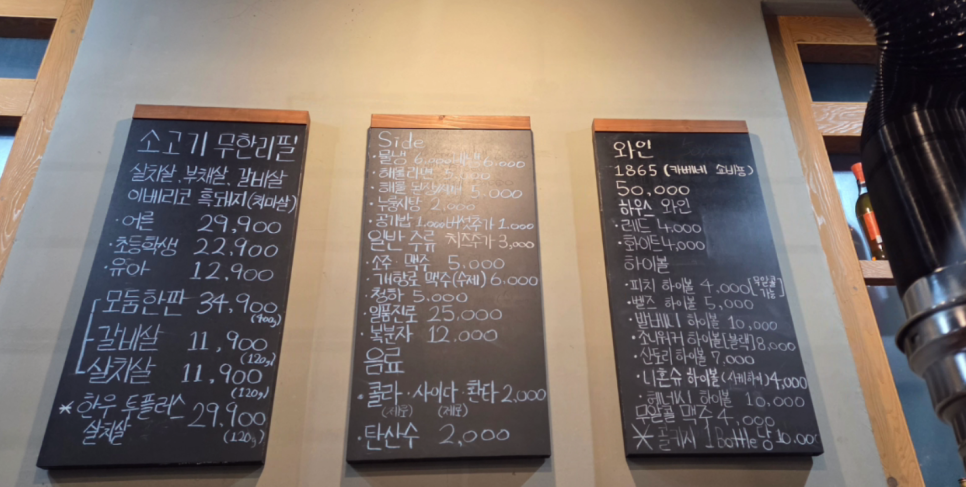 소고기 무한리필
살치살.부채살.갈비살
이베리코 흑돼지(치마살)
·어른 29,900
·초등학생 22,900
·유아 12,900
모둠한판 34,900
(400g)
갈비살 11,900
(120g)
살치살 11,900
(120g)
* 한우 투플러스 29,900
살치살 (120g)
Side
·물냉 6,000 6,000
·해물라면 5,000
·해물 5,000
·누룽지탕 2,000
·공기밥 1,000 버섯추가 1,000
일반 주류 치즈추가 3,000
·소주·맥주 5,000
·개항로 맥주(수제) 6,000
·청하 5,000
·일품진로 25,000
·복분자 12,000
음료
·콜라·사이다·환타 2,000
(제로) (제로)
·탄산수 2,000
와인
1865 (카베르네 소비뇽)
50,000
하우스 와인
·레드 4,000
·화이트 4,000
하이볼
·피치 하이볼 4,000 [무알콜 가능]
·벨즈 하이볼 5,000
·발베니 하이볼 10,000
·조니워커 하이볼[블랙] 8,000
·산토리 하이볼 7,000
·니혼슈 하이볼 (사케) 4,000
·헤네시 하이볼 10,000
무알콜 맥주 4,000
* 콜키지 1 Bottle 당 10,000